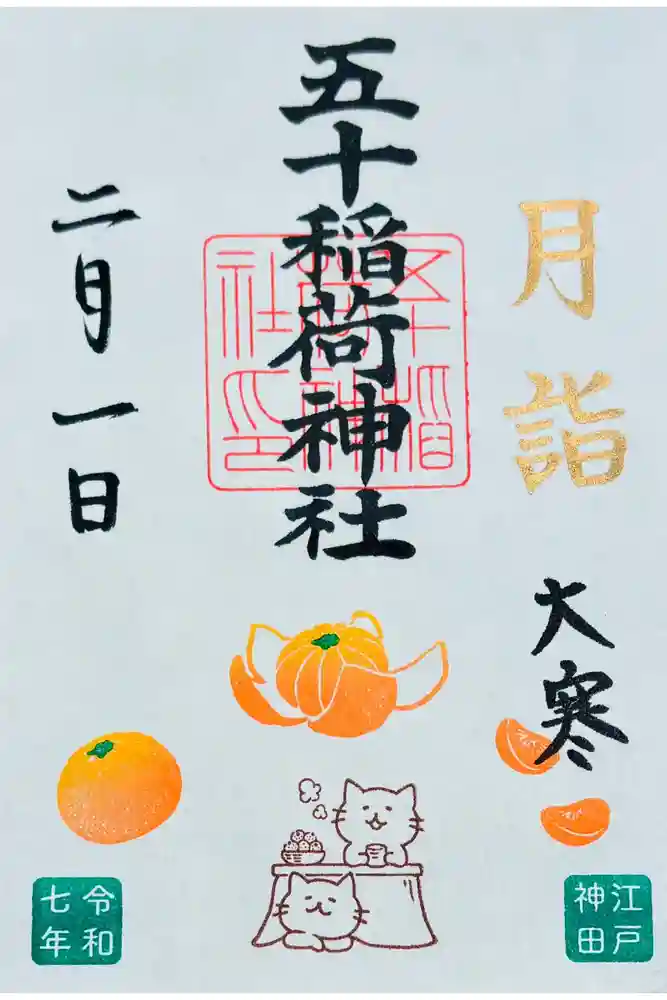 月詣
大寒
五十稲荷神社
五十稲荷神社印
二月一日
江戸
神田
令和
七年